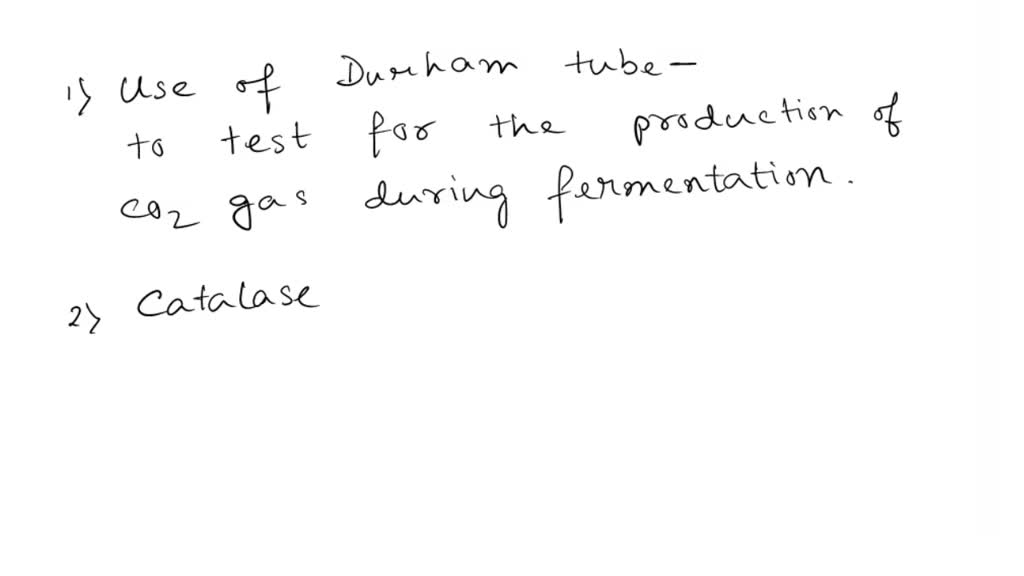 1) Use of Durham tube-
to test for the production of
CO2 gas during fermentation.
2) Catalase